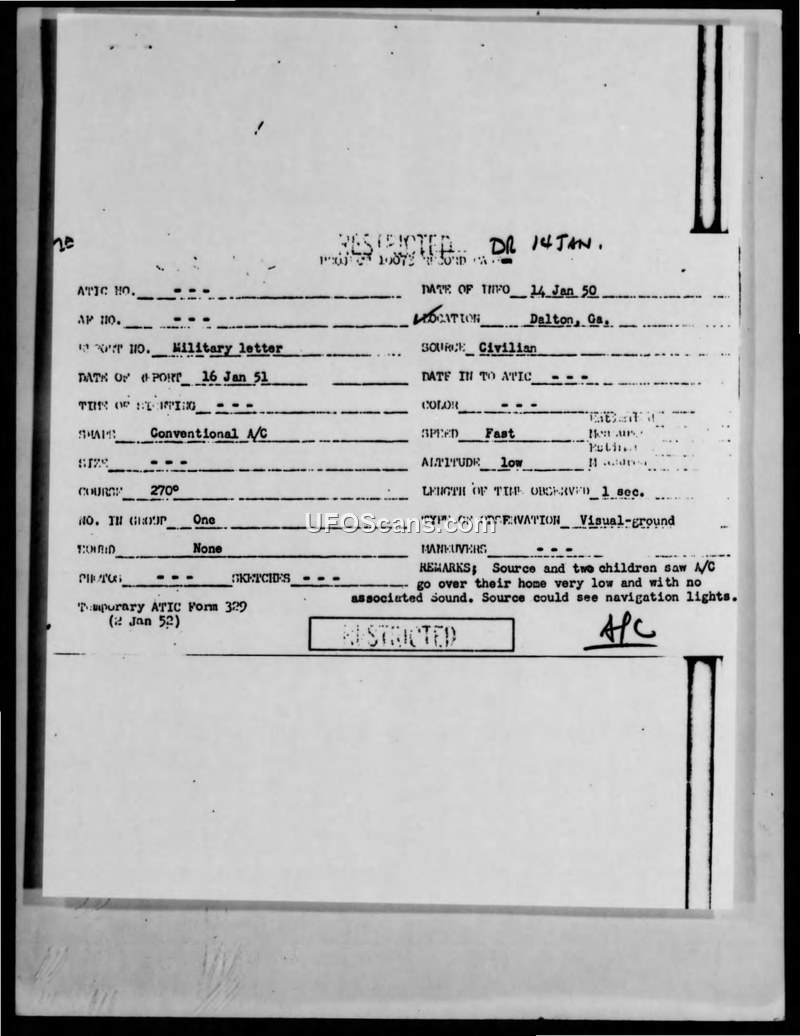 RESTRICTED DR 14 JAN.
PROJECT 10073 RECORD CARD
ATIC NO. - - - DATE OF INFO 14 Jan 50
AF NO. - - - LOCATION Dalton, Ga.
REPORT NO. Military letter SOURCE Civilian
DATE OF REPORT 16 Jan 51 DATE IN TO ATIC - - -
TIME OF SIGHTING - - - COLOR - - -
SHAPE Conventional A/C SPEED Fast
SIZE - - - ALTITUDE low
COURSE 270° LENGTH OF TIME OBSERVED 1 sec.
NO. IN GROUP One TYPE OF OBSERVATION Visual-ground
UFOScans.com
SOUND None MANEUVERS - - -
PHOTOS - - - SKETCHES - - - REMARKS; Source and two children saw A/C
go over their home very low and with no
associated Sound. Source could see navigation lights.
Temporary ATIC Form 329
(2 Jan 52)
RESTRICTED
A/C